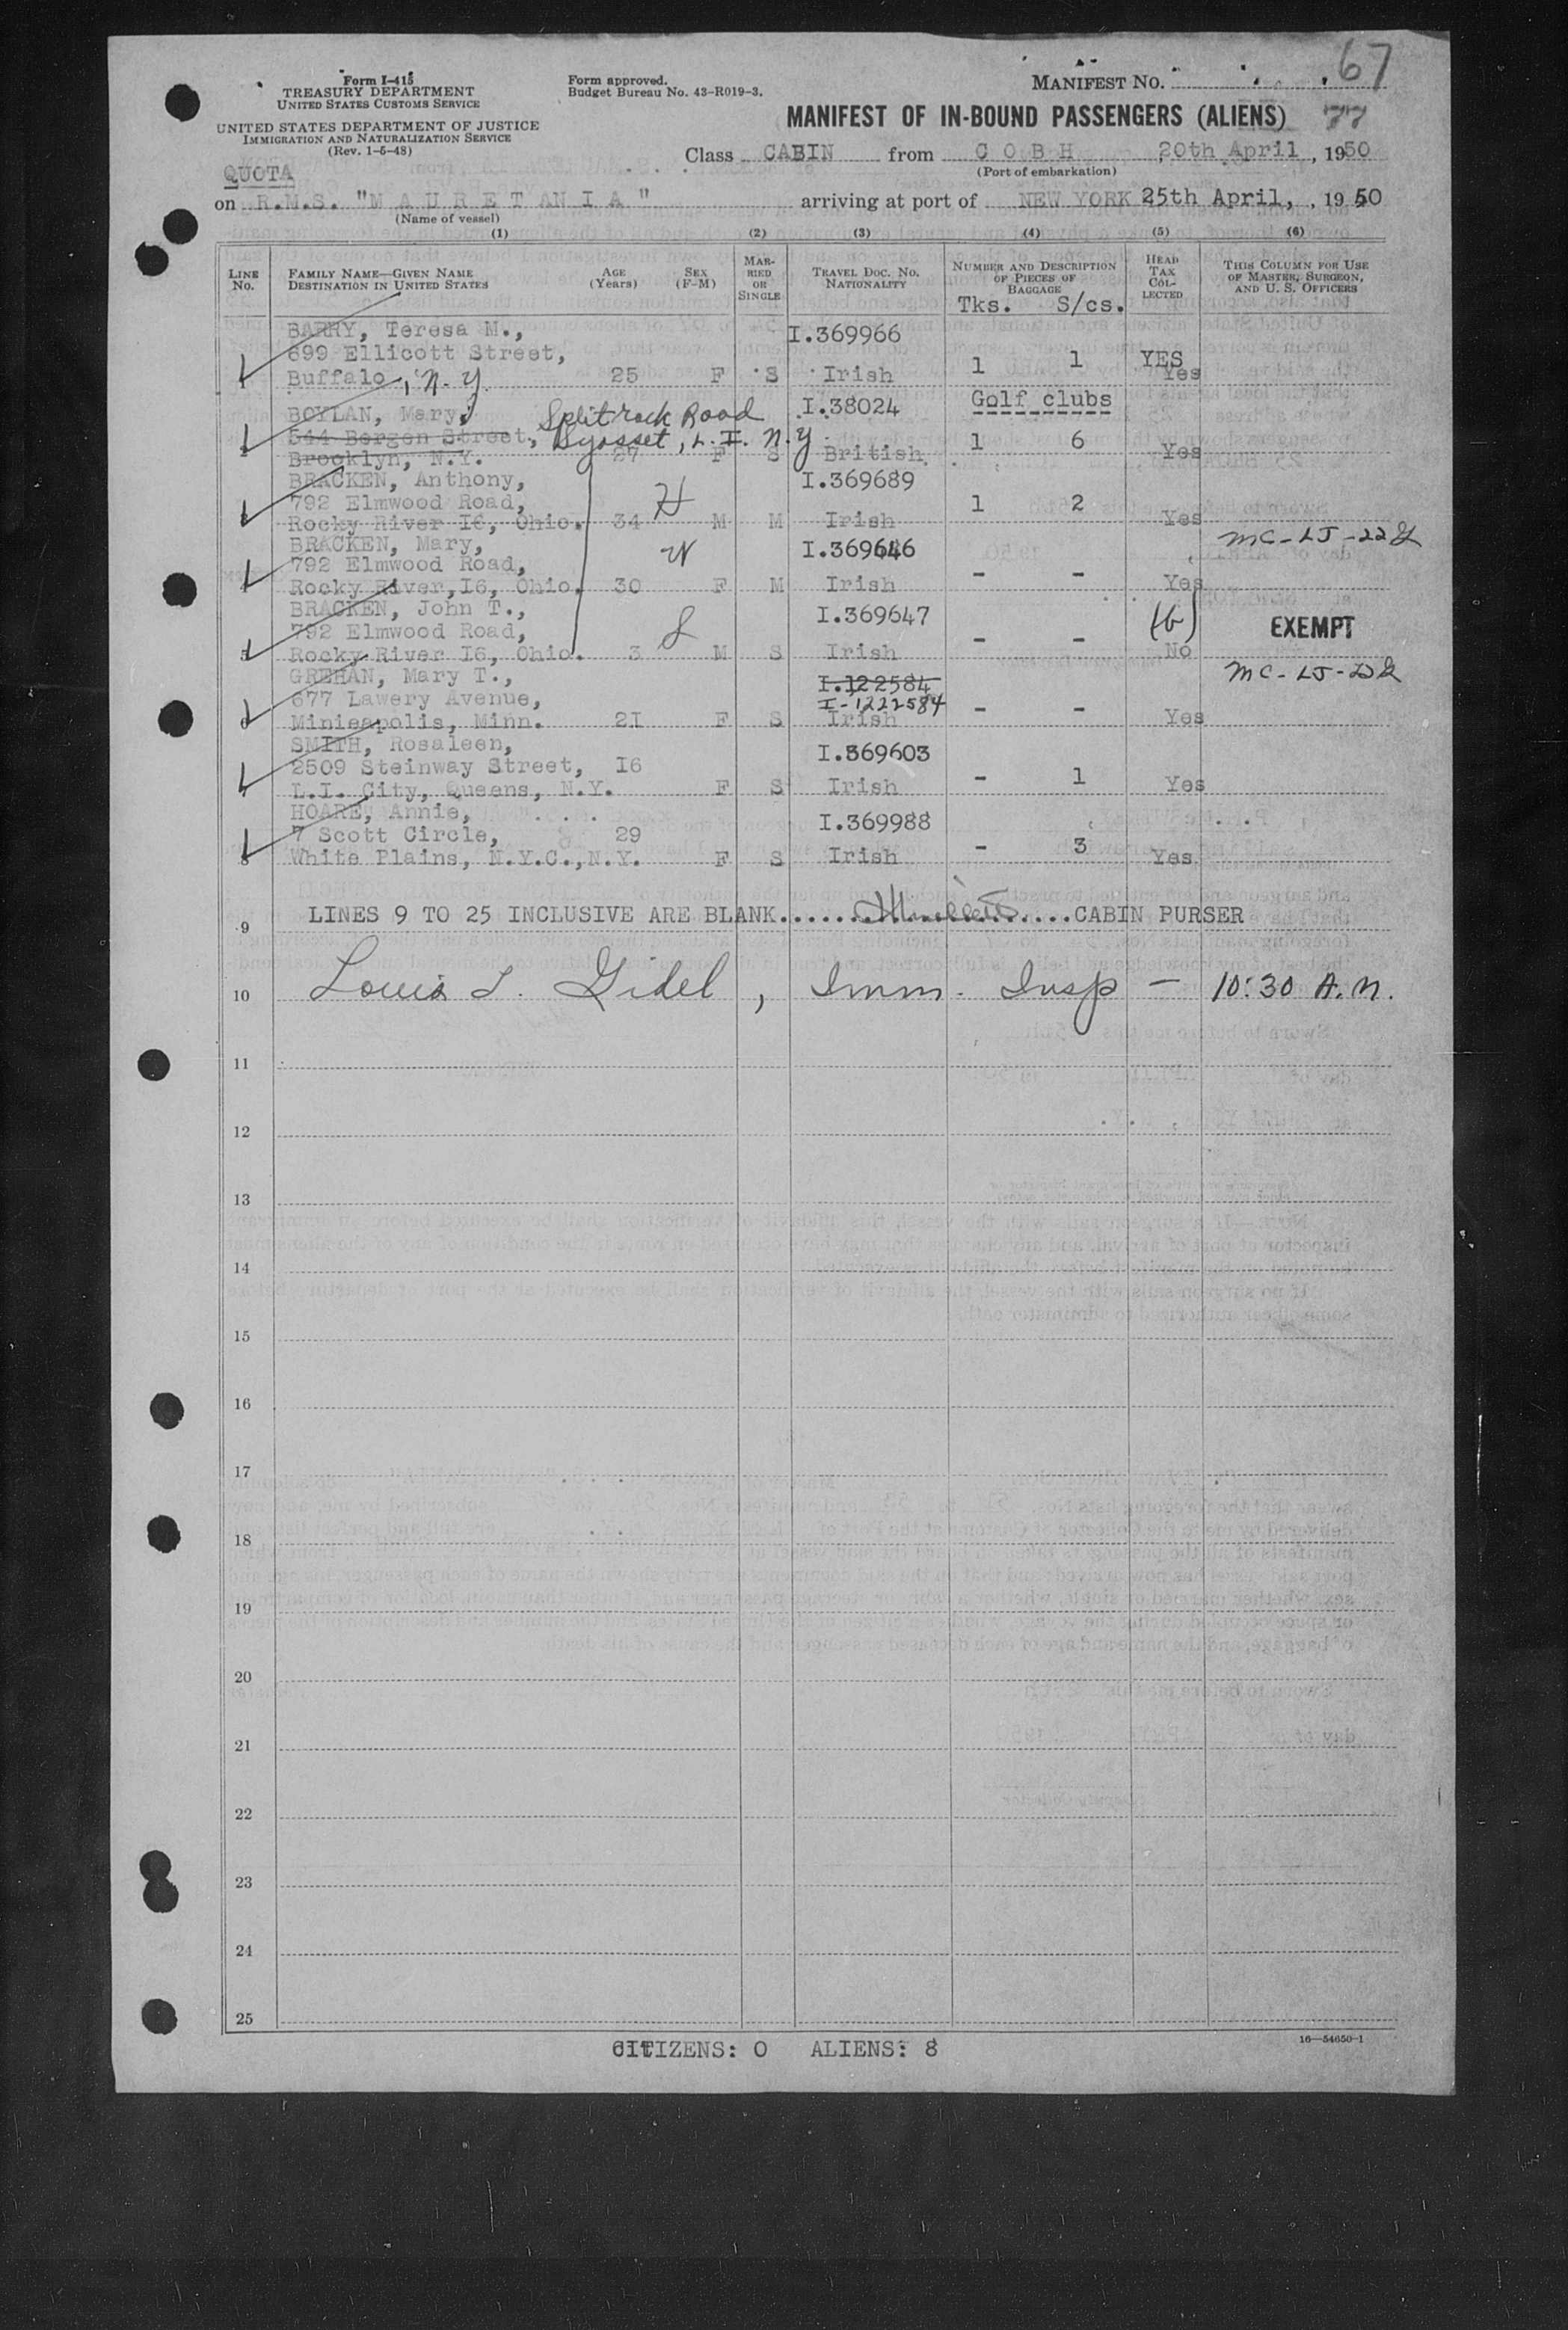 67
Form I-415
TREASURY DEPARTMENT
UNITED STATES CUSTOMS SERVICE
UNITED STATES DEPARTMENT OF JUSTICE
IMMIGRATION AND NATURALIZATION SERVICE
(Rev. 1-5-48)
Form approved.
Budget Bureau No. 43-R019-3.
MANIFEST NO.
MANIFEST OF IN-BOUND PASSENGERS (ALIENS) 77
Class CABIN from C O B H 20th April, 1950
(Port of embarkation)
QUOTA
on R.M.S. "M A U R E T A N I A" arriving at port of NEW YORK 25th April, , 1950
(Name of vessel)
(1) (2) (3) (4) (5) (6)
LINE No. FAMILY NAME—GIVEN NAME DESTINATION IN UNITED STATES AGE (Years) SEX (F-M) MARRIED OR SINGLE TRAVEL DOC. NO. NATIONALITY NUMBER AND DESCRIPTION OF PIECES OF BAGGAGE HEAD TAX COLLECTED THIS COLUMN FOR USE OF MASTER, SURGEON, AND U. S. OFFICERS
Tks. S/cs.
BARRY, Teresa M., I.369966
699 Ellicott Street, 1 1 YES
1 Buffalo, N.Y 25 F S Irish Yes
BOYLAN, Mary, Split rock Road I.38024 Golf clubs
544 Bergen Street, Syosset, L.I. N.Y 1 6
2 Brooklyn, N.Y. 27 F S British Yes
BRACKEN, Anthony, I.369689
792 Elmwood Road, H 1 2
3 Rocky River I6, Ohio. 34 M M Irish Yes
BRACKEN, Mary, W I.369646 MC-LJ-22
792 Elmwood Road, - -
4 Rocky River, I6, Ohio. 30 F M Irish Yes
BRACKEN, John T., I.369647
792 Elmwood Road, S - - (6) EXEMPT
5 Rocky River I6, Ohio. 3 M S Irish No
GREHAN, Mary T., I.122584 MC-LJ-
677 Lawery Avenue, I-1222584 - -
6 Minieapolis, Minn. 2I F S Irish Yes
SMITH, Rosaleen, I.369603
2509 Steinway Street, I6 - 1
7 L.I. City, Queens, N.Y. F S Irish Yes
HOARE, Annie, I.369988
7 Scott Circle, 29 - 3
8 White Plains, N.Y.C.,N.Y. F S Irish Yes
9 LINES 9 TO 25 INCLUSIVE ARE BLANK...... .....CABIN PURSER
10 Louis I. Gidel, Imm. Insp — 10:30 A.M.
11
12
13
14
15
16
17
18
19
20
21
22
23
24
25
16—54650-1
CITIZENS: 0 ALIENS: 8